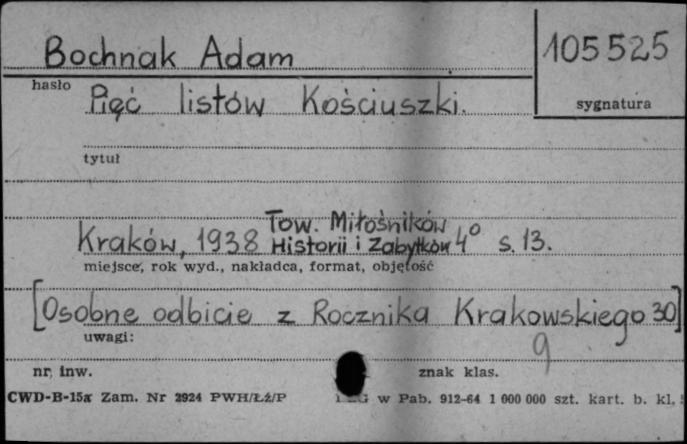 Bochnak Adam
105525
hasło
sygnatura
Pięć listów Kościuszki.
tytuł
Tow. Miłośników
Kraków, 1938 Historii i Zabytków 4° s. 13.
miejsce, rok wyd., nakładca, format, objętość
[Osobne odbicie z Rocznika Krakowskiego 30]
uwagi:
9
nr. inw.
znak klas.
CWD-B-15a Zam. Nr 2924 PWH/Łź/P
w Pab. 912-64 1 000 000 szt. kart. b. kl.